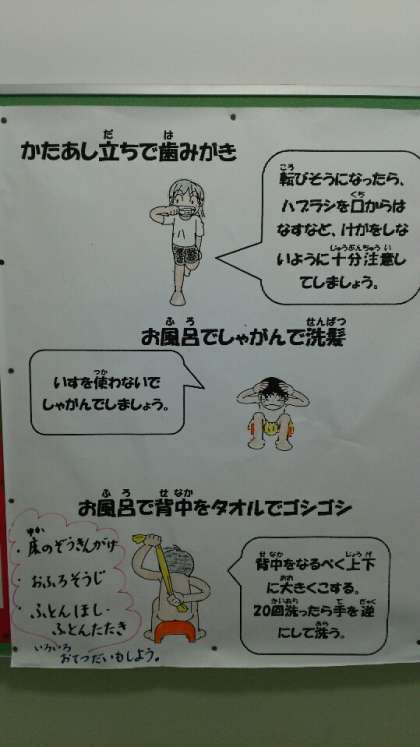 かたあし立ちで歯みがき
転びそうになったら、
ハブラシを口からは
なすなど、けがをしな
いように十分注意し
てしましょう。
お風呂でしゃがんで洗髪
いすを使わないで
しゃがんでしましょう。
お風呂で背中をタオルでゴシゴシ
・床のぞうきんがけ
・おふろそうじ
・ふとんほし・
ふとんたたき
いろいろ おてつだいもしよう。
背中をなるべく上下
に大きくこする。
20回洗ったら手を逆
にして洗う。